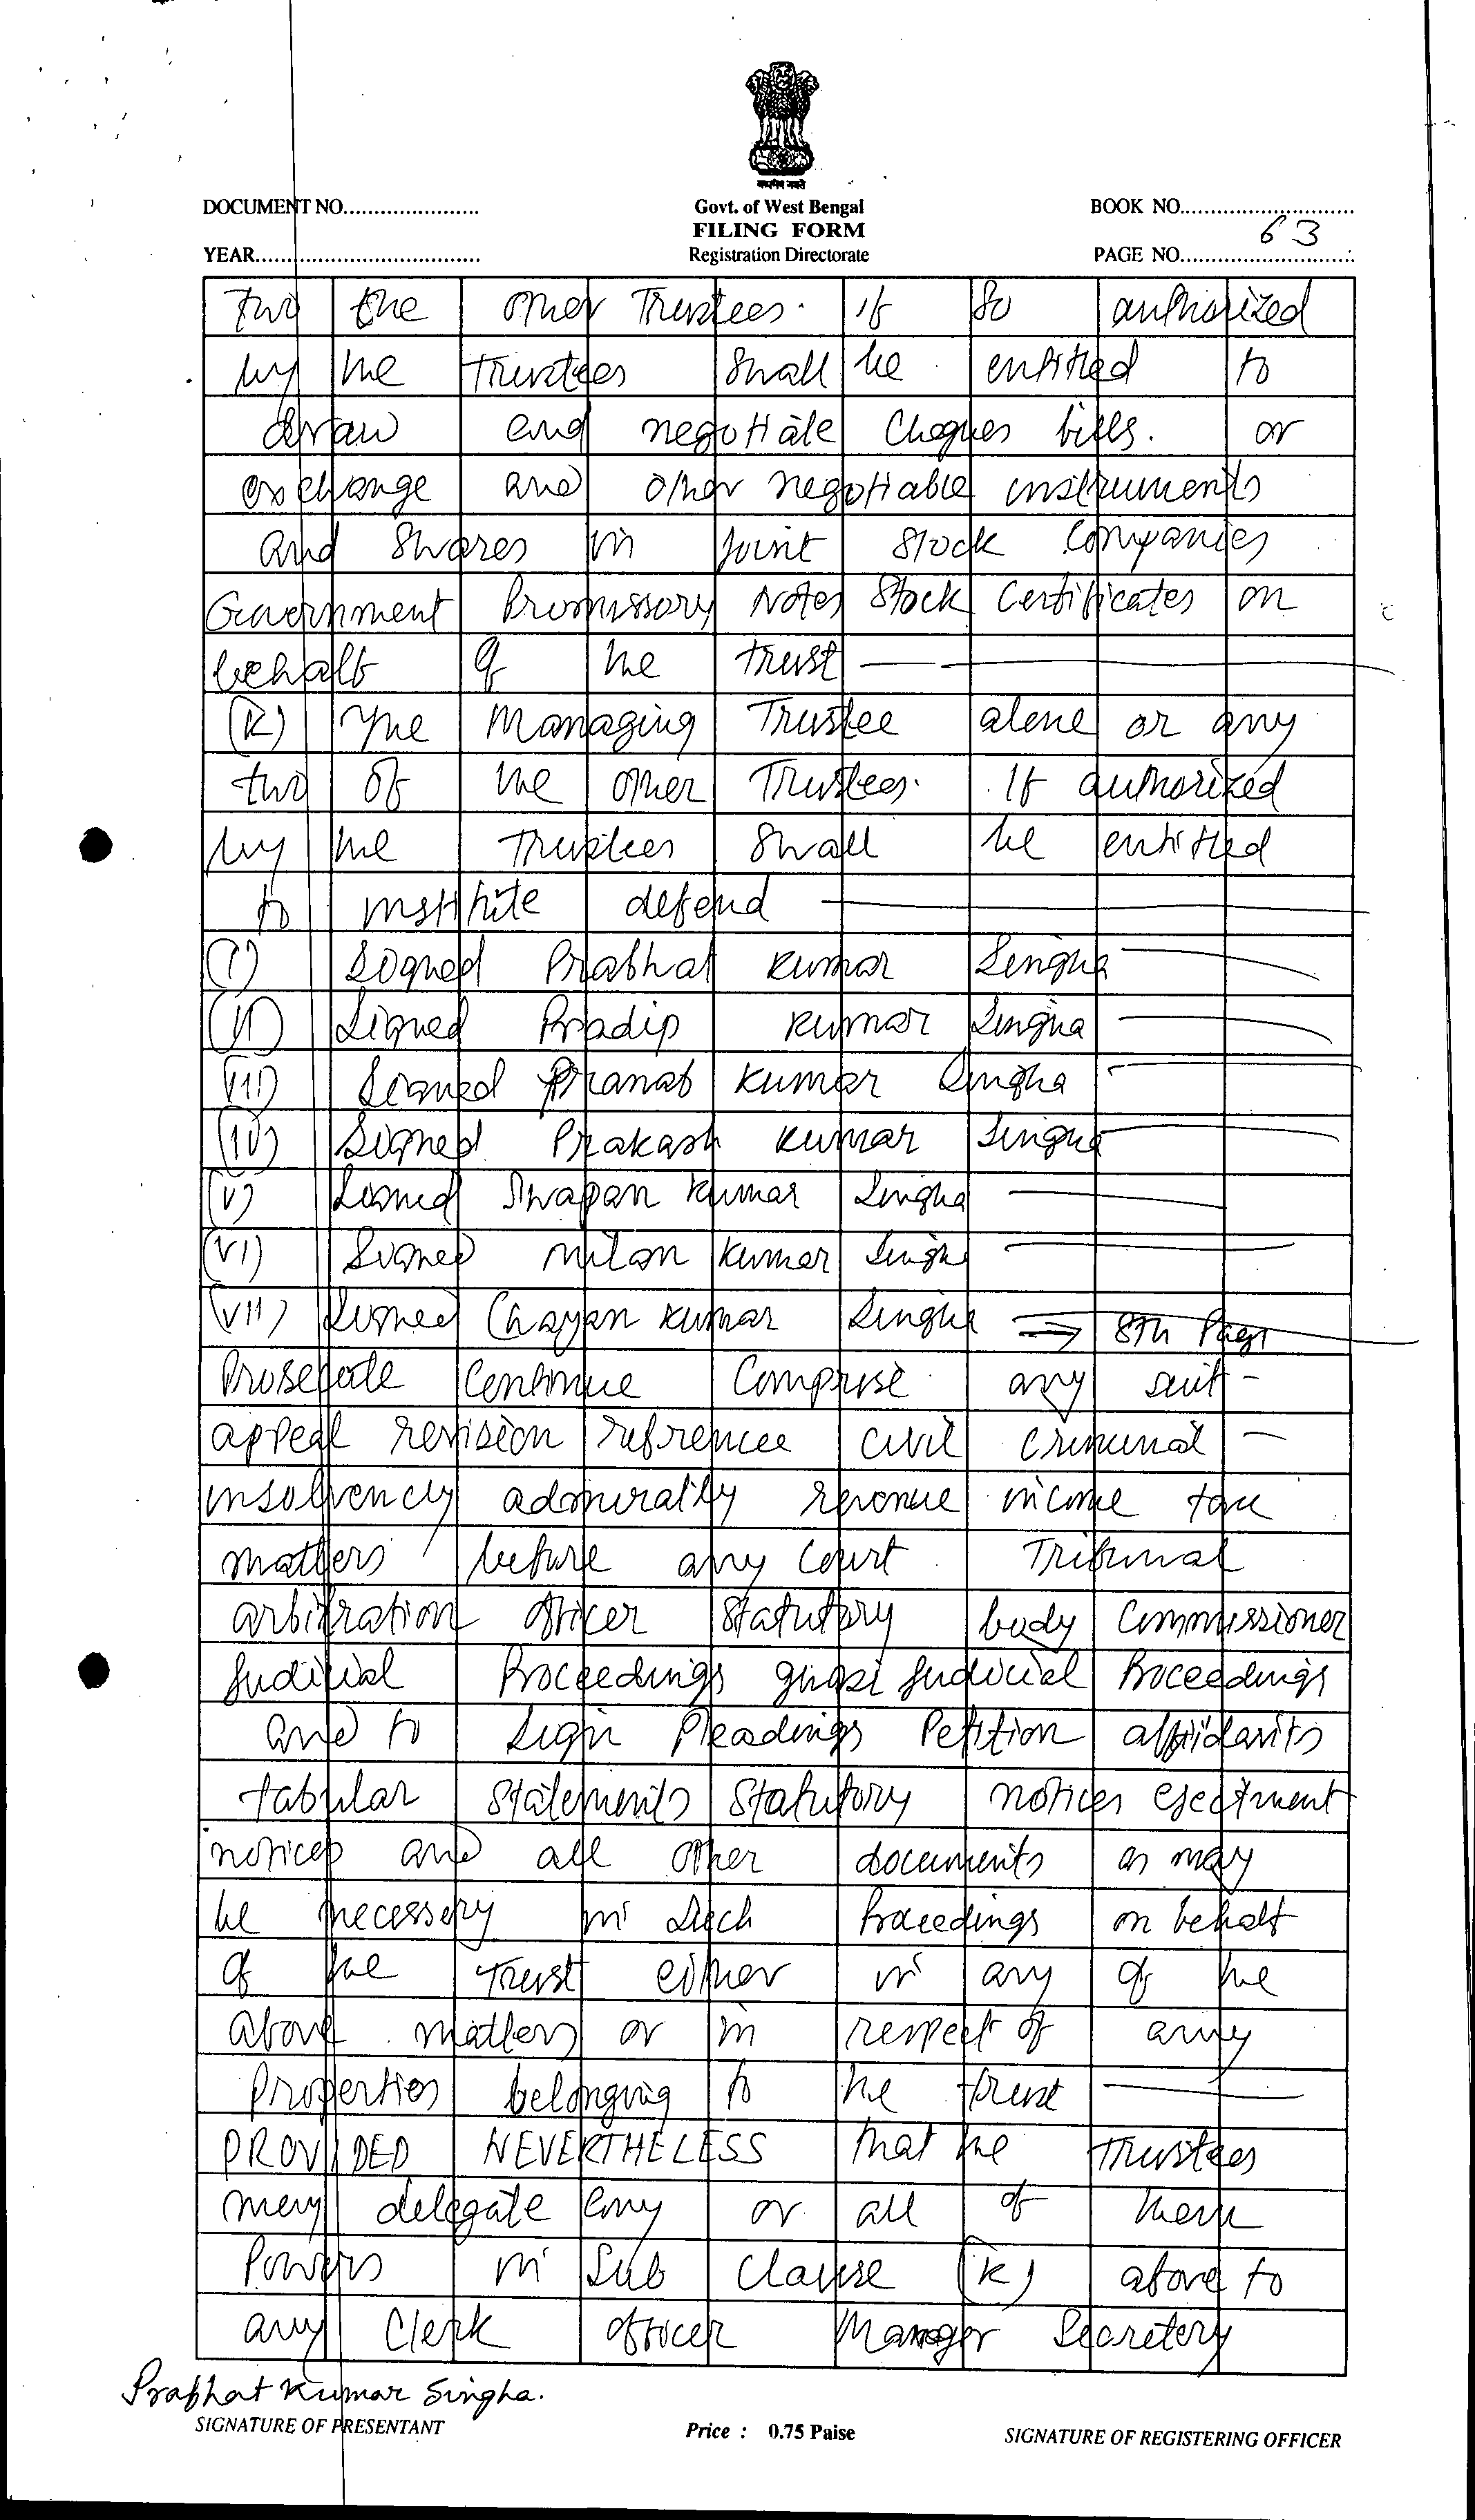 सत्यमेव जयते
DOCUMENT NO......................
Govt. of West Bengal
BOOK NO............................
FILING FORM
63
YEAR.....................................
Registration Directorate
PAGE NO............................
two the other Trustees. If so authorized
by the trustees shall be entitled to
draw and negotiate Cheques bills. or
exchange and other negotiable instruments
and shares in joint stock Companies
Government Promissory Notes Stock Certificates on
behalf of the trust
(K) The Managing Trustee alone or any
two of the other Trustees. If authorized
by the Trustees shall be entitled
to institute defend
(I) Signed Prabhat Kumar Singha
(II) Signed Pradip Kumar Singha
(III) Signed Pranab Kumar Singha
(IV) Signed Prakash Kumar Singha
(V) Signed Swapan Kumar Singha
(VI) Signed Milan Kumar Singha
(VII) Signed Chayan Kumar Singha ⇒ 8th Page
Prosecute Continue Comprise any suit -
appeal revision referencee civil criminal -
insolvency admirality revenue income tax
matters before any Court Tribunal
arbitration officer Statutory body Commissioner
Judicial Proceedings quasi Judicial Proceedings
and to sign Pleadings Petition affidavits
tabular statements Statutory notices ejectment
notices and all other documents as may
be necessery in such Proceedings on behalf
of the Trust either in any of the
above matters or in respect of any
Properties belonging to the trust
PROVIDED NEVERTHELESS that the trustees
may delegate any or all of them
Powers in Sub Clause (K) above to
any Clerk officer Manager Secretery
Prabhat Kumar Singha.
SIGNATURE OF PRESENTANT
Price : 0.75 Paise
SIGNATURE OF REGISTERING OFFICER